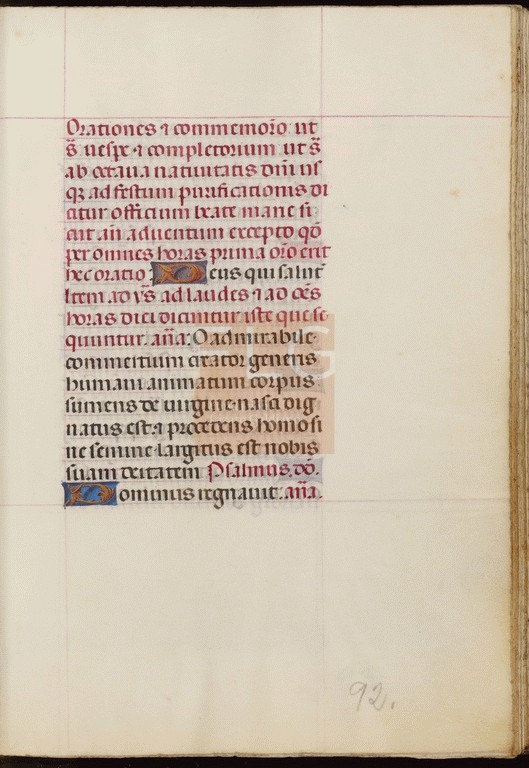 Orationes ⁊ commemorõ ut
s̃. uespẽ ⁊ completorium ut s̃
ab octaua natiuitatis dñi us
qꝫ ad festum purificationis di
citur officium beate marie si
cut añ aduentum excepto qõ
per omnes horas prima orõ erit
hec oratio Deus qui salut̃
Item ad vs̃ ad laudes ⁊ ad oẽs
horas diei dicuntur iste que se
quuntur. añã: O admirabile
commertium creator generis
humani animatum corpus
sumens de uirgine nasci dig
natus est ⁊ procedens homo si
ne semine largitus est nobis
suam deitatem Psalmus. dõ.
Dominus regnauit. añã.
92.
FLG